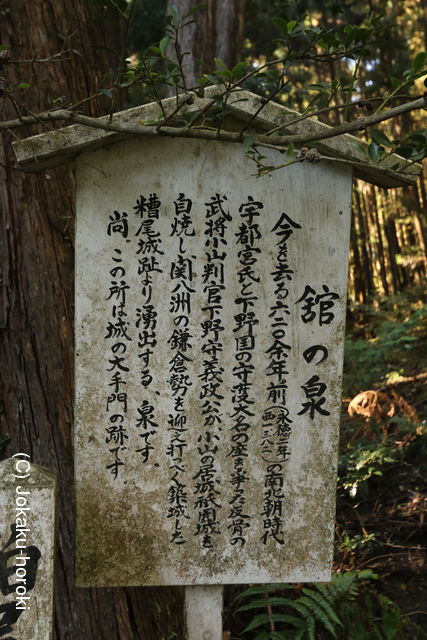 舘の泉
今を去る六二〇余年前（永徳二年 西一三八二）の南北朝時代
宇都宮氏と下野国の守護大名の座を争った反骨の
武将小山判官下野守義政公が小山の居城祇園城を
自焼し関八洲の鎌倉勢を迎え打べく築城した
糟尾城趾より湧出する、泉です。
尚、この所は城の大手門の跡です
(C) Jokaku-horoki